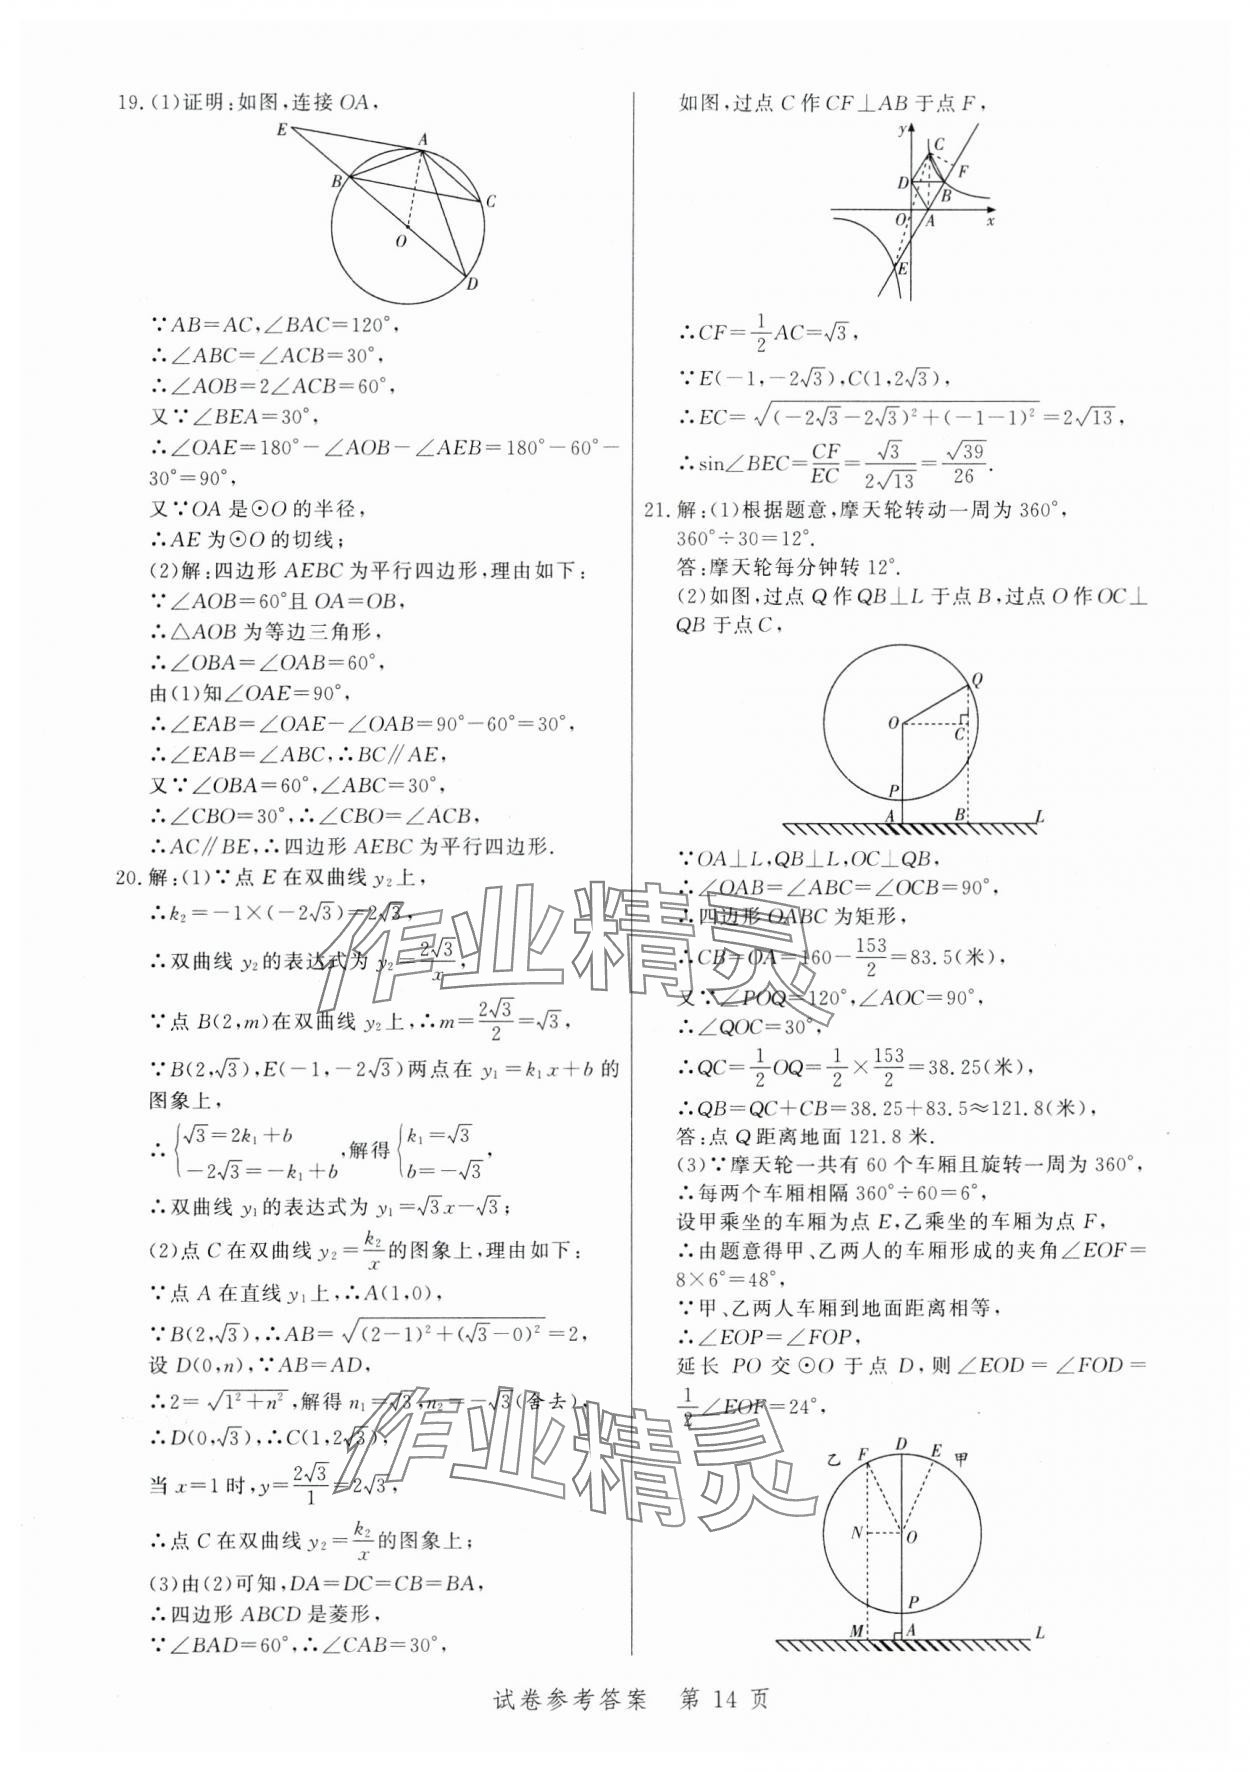 19.(1)证明:如图,连接 OA,
E
A
B
C
O
D
∵AB=AC,∠BAC=120°,
∴∠ABC=∠ACB=30°,
∴∠AOB=2∠ACB=60°,
又∵∠BEA=30°,
∴∠OAE=180°-∠AOB-∠AEB=180°-60°-
30°=90°,
又∵OA 是⊙O 的半径,
∴AE 为⊙O 的切线;
(2)解:四边形 AEBC 为平行四边形,理由如下:
∵∠AOB=60°且 OA=OB,
∴△AOB 为等边三角形,
∴∠OBA=∠OAB=60°,
由(1)知∠OAE=90°,
∴∠EAB=∠OAE-∠OAB=90°-60°=30°,
∴∠EAB=∠ABC,∴BC∥AE,
又∵∠OBA=60°,∠ABC=30°,
∴∠CBO=30°,∴∠CBO=∠ACB,
∴AC∥BE,∴四边形 AEBC 为平行四边形.
20.解:(1)∵点 E 在双曲线 y₂上,
∴k₂=-1×(-2√3)=2√3,
∴双曲线 y₂的表达式为 y₂=2√3/x,
∵点 B(2,m)在双曲线 y₂上,∴m=2√3/2=√3,
∵B(2,√3),E(-1,-2√3)两点在 y₁=k₁x+b 的
图象上,
∴{√3=2k₁+b
-2√3=-k₁+b,解得{k₁=√3
b=-√3
∴双曲线 y₁的表达式为 y₁=√3x-√3;
(2)点 C 在双曲线 y₂=k₂/x的图象上,理由如下:
∵点 A 在直线 y₁上,∴A(1,0),
∵B(2,√3),∴AB=√((2-1)²+(√3-0)²)=2,
设 D(0,n),∵AB=AD,
∴2=√(1²+n²),解得 n₁=√3,n₂=-√3(舍去),
∴D(0,√3),∴C(1,2√3),
当 x=1 时,y=2√3/1=2√3,
∴点 C 在双曲线 y₂=k₂/x的图象上;
(3)由(2)可知,DA=DC=CB=BA,
∴四边形 ABCD 是菱形,
∵∠BAD=60°,∴∠CAB=30°,
如图,过点 C 作 CF⊥AB 于点 F,
y
C
F
D
B
O
A
x
E
∴CF=1/2AC=√3,
∵E(-1,-2√3),C(1,2√3),
∴EC=√((-2√3-2√3)²+(-1-1)²)=2√13,
∴sin∠BEC=CF/EC=√3/2√13=√39/26.
21.解:(1)根据题意,摩天轮转动一周为 360°,
360°÷30=12°.
答:摩天轮每分钟转 12°.
(2)如图,过点 Q 作 QB⊥L 于点 B,过点 O 作 OC⊥
QB 于点 C,
Q
O
C
P
A
B
L
∵OA⊥L,QB⊥L,OC⊥QB,
∴∠OAB=∠ABC=∠OCB=90°,
∴四边形 OABC 为矩形,
∴CB=OA=160-153/2=83.5(米),
又∵∠POQ=120°,∠AOC=90°,
∴∠QOC=30°,
∴QC=1/2OQ=1/2×153/2=38.25(米),
∴QB=QC+CB=38.25+83.5≈121.8(米),
答:点 Q 距离地面 121.8 米.
(3)∵摩天轮一共有 60 个车厢且旋转一周为 360°,
∴每两个车厢相隔 360°÷60=6°,
设甲乘坐的车厢为点 E,乙乘坐的车厢为点 F,
∴由题意得甲、乙两人的车厢形成的夹角∠EOF=
8×6°=48°,
∵甲、乙两人车厢到地面距离相等,
∴∠EOP=∠FOP,
延长 PO 交⊙O 于点 D,则∠EOD=∠FOD=
1/2∠EOF=24°,
乙
F
D
E
甲
N
O
P
M
A
L
作业精灵
作业精灵
试卷参考答案 第 14 页